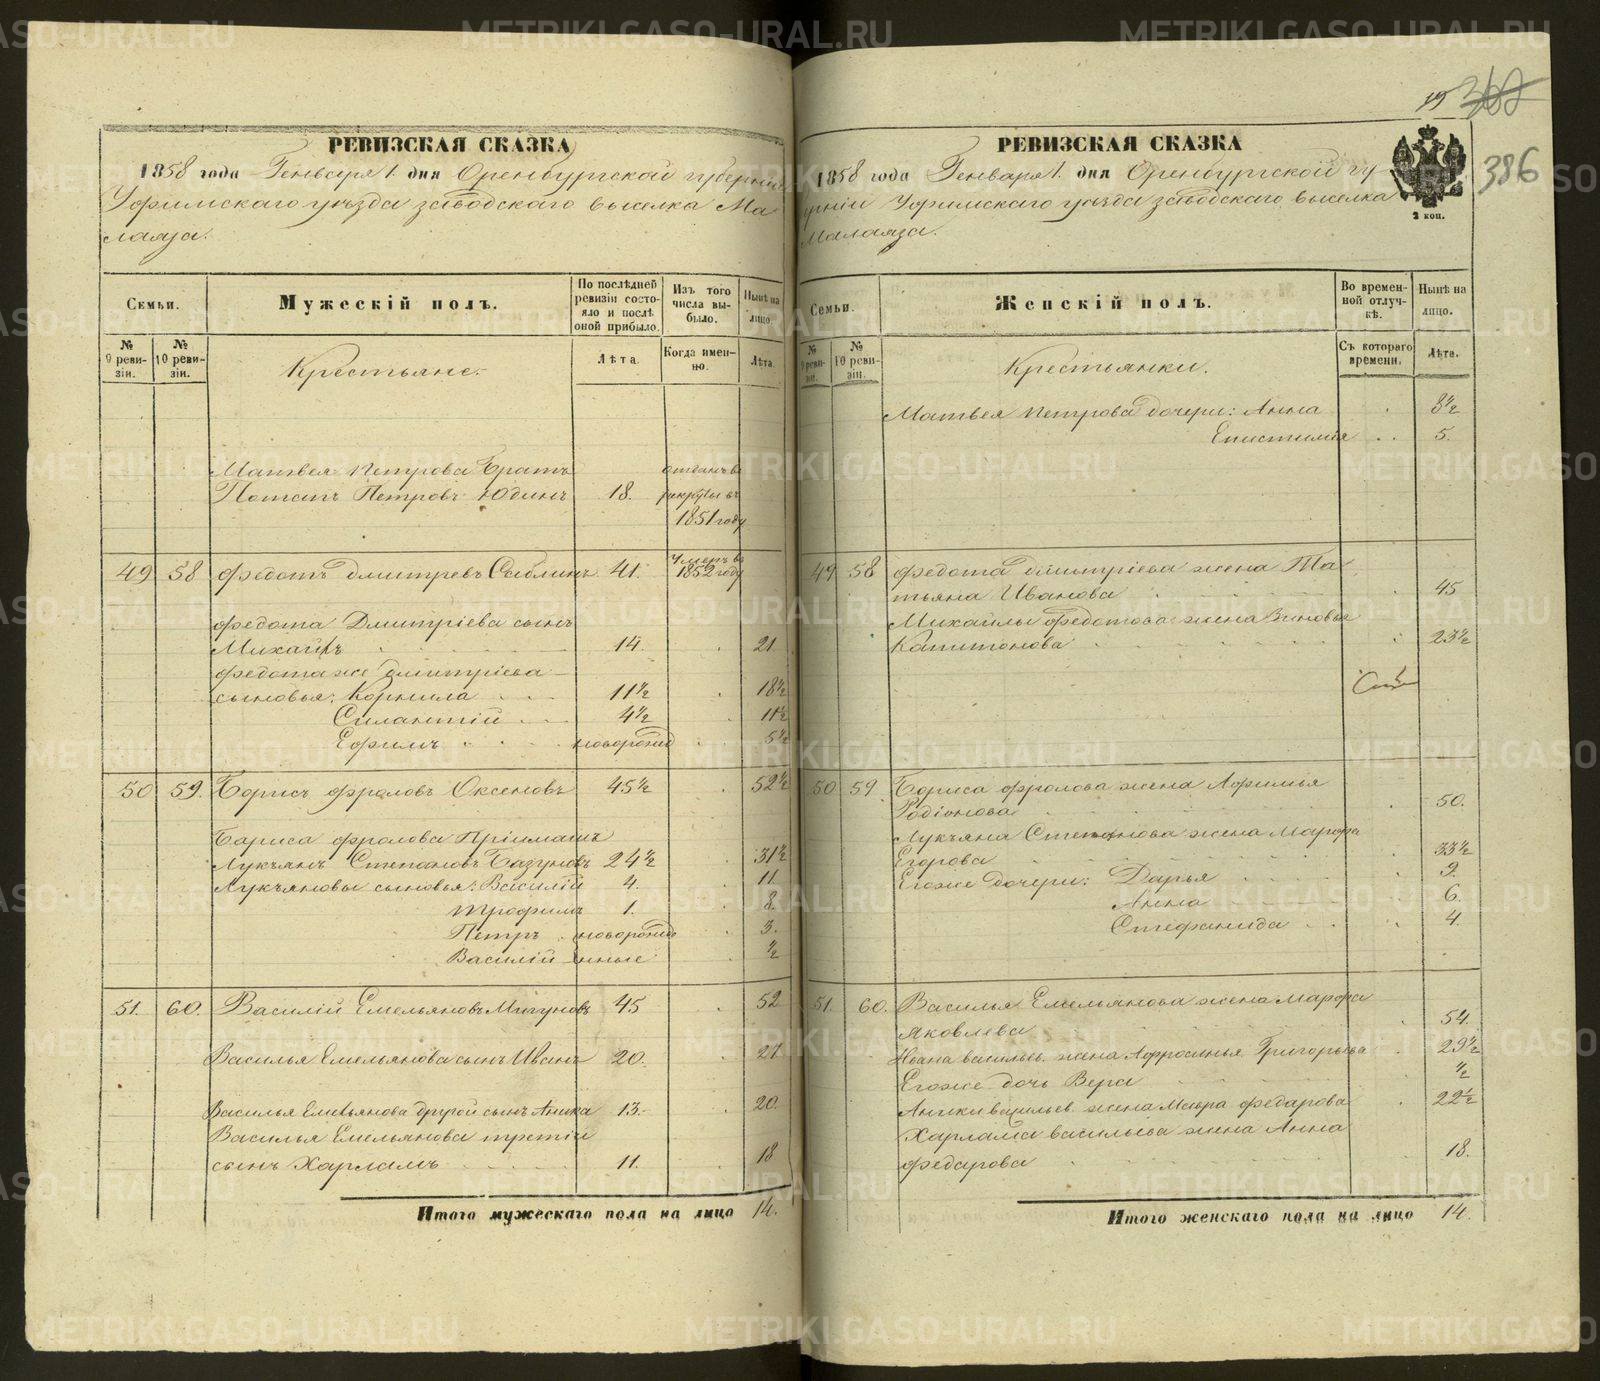 РЕВИЗСКАЯ СКАЗКА
1858 года Генваря 1. дня Оренбургской губерніи
Уфимскаго уѣзда заводскаго выселка Ма
лаяза.
Семьи.
Мужескій полъ.
По послѣдней ревизіи состояло и послѣ оной прибыло.
Изъ того числа выбыло.
Нынѣ на лицо.
№ 9 ревизіи.
№ 10 ревизіи.
Крестьяне.
Лѣта.
Когда именно.
Лѣта.
Матвея Петрова Братъ отданъ въ
Потапъ Петровъ Юдинъ 18. рекруты въ
1851 году
49 58 Федотъ Дмитревъ Сыблинъ 41. Умеръ въ 1852 году
Федота Дмитріева сынъ
Михайлъ 14. 21.
Федота же Дмитріева
сыновья: Корнила 11½ 18½
Силантій 4½ 11½
Ефимъ новорожд 5½
50 59. Борисъ Фроловъ Оксеновъ 45½ 52½
Бариса Фролова Пріимашъ
Лукъянъ Степановъ Базуновъ 24½ 31½
Лукъяновы сыновья: Василій 4. 11.
Трофимъ 1. 8.
Петръ новорожд 3.
Василій енные ½
51. 60. Василій Емельяновъ Мигуновъ 45 52
Василья Емельянова сынъ Иванъ 20. 27
Василья Емельянова другой сынъ Аника 13. 20.
Василья Емельянова третій
сынъ Харламъ 11. 18
Итого мужескаго пола на лицо 14.
19 368
386
РЕВИЗСКАЯ СКАЗКА
1858 года Генваря 1. дня Оренбургской гу-
ерніи Уфимскаго уѣзда заводскаго выселка
Малаяза.
2 коп.
Семьи.
Женскій полъ.
Во временной отлучкѣ.
Нынѣ на лицо.
№ 9 ревизіи.
№ 10 ревизіи.
Крестьянки.
Съ котораго времени.
Лѣта.
Матвея Петрова дочери: Анна 8½
Епистимія 5.
49 58 Федота Дмитріева жена Та
тьяна Иванова 45
Михайлы Федотова жена Зиновья
Капитонова 23½
50 59 Бориса Фролова жена Афимья
Родіонова 50.
Лукъяна Степанова жена Марфа
Егорова 33½
Егоже дочери: Дарья 9.
Анна 6.
Стефанида 4.
51. 60. Василья Емельянова жена Марфа
Яковлева 54.
Ивана васильев. жена Афросинья Григорьева 29½
Егоже дочь Вера ½
Аники васильев. жена Мавра Федарова 22½
Харлама васильева жена Анна
Федарова 18.
Итого женскаго пола на лицо 14.
METRIKI.GASO-URAL.RU